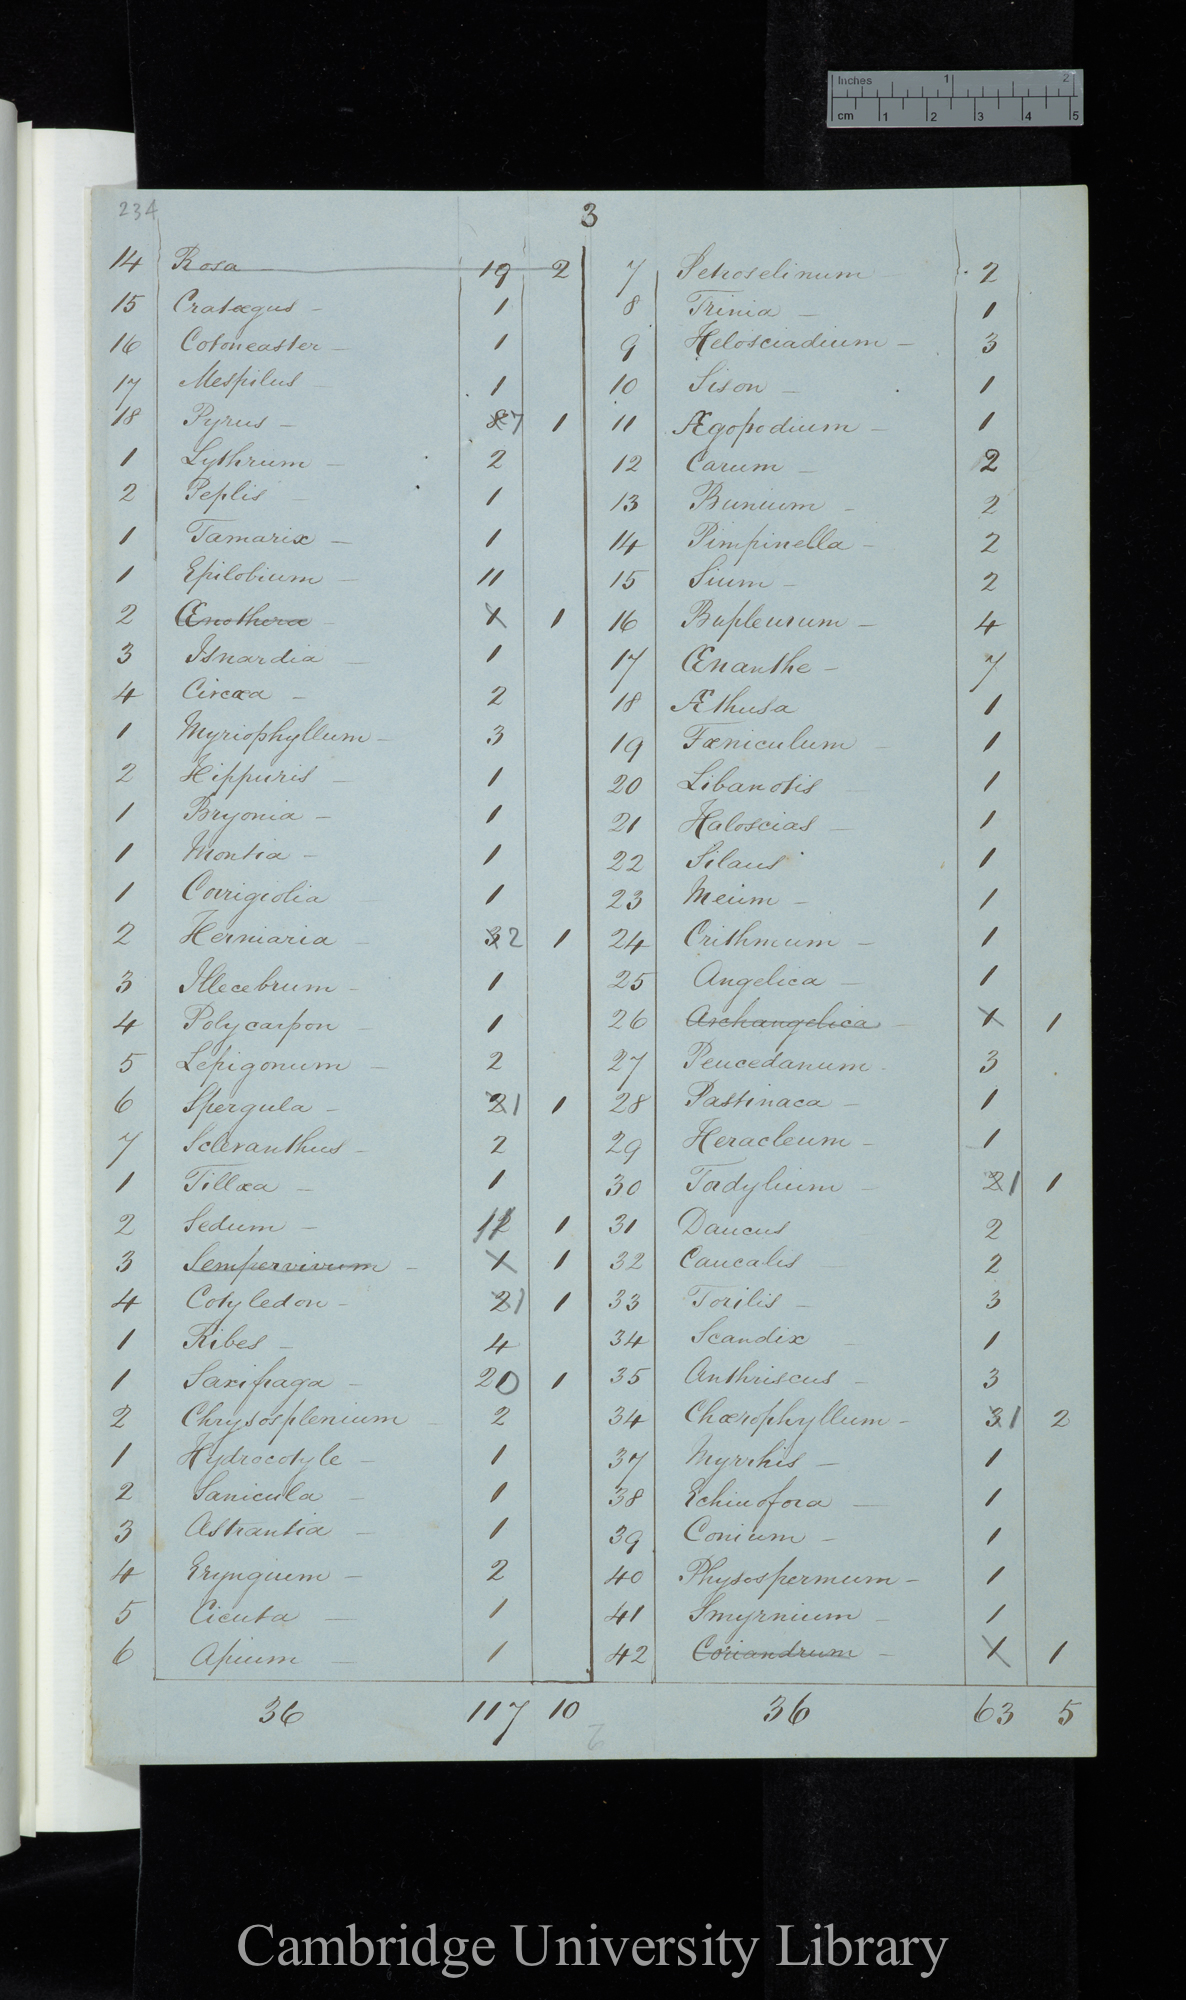 Inches 1 2
cm 1 2 3 4 5
234
3
14 Rosa — 19 2
15 Cratægus — 1
16 Cotoneaster — 1
17 Mespilus — 1
18 Pyrus — 87 1
1 Lythrum — 2
2 Peplis — 1
1 Tamarix — 1
1 Epilobium — 11
2 Œnothera — 1 1
3 Isnardia — 1
4 Circæa — 2
1 Myriophyllum — 3
2 Hippuris — 1
1 Bryonia — 1
1 Montia — 1
1 Corrigiolia 1
2 Herniaria — 32 1
3 Illecebrum — 1
4 Polycarpon — 1
5 Lepigonum — 2
6 Spergula — 21 1
7 Scleranthus — 2
1 Tillæa — 1
2 Sedum — 112 1
3 Sempervivum — 1 1
4 Cotyledon — 21 1
1 Ribes — 4
1 Saxifraga — 20 1
2 Chrysosplenium — 2
1 Hydrocotyle — 1
2 Sanicula — 1
3 Astrantia — 1
4 Eryngium — 2
5 Cicuta — 1
6 Apium — 1
36 117 10
7 Setroselinum 2
8 Trinia — 1
9 Helosciadium — 3
10 Sison — 1
11 Ægopodium — 1
12 Carum — 2
13 Bunium — 2
14 Pimpinella — 2
15 Sium — 2
16 Bupleurum — 4
17 Œnanthe — 7
18 Æthusa 1
19 Fœniculum — 1
20 Libanotis — 1
21 Haloscias — 1
22 Silaus 1
23 Meum — 1
24 Crithmum — 1
25 Angelica — 1
26 Archangelica — 1 1
27 Peucedanum — 3
28 Pastinaca — 1
29 Heracleum — 1
30 Tordylium — 21 1
31 Daucus 2
32 Caucalis — 2
33 Torilis — 3
34 Scandix — 1
35 Anthriscus — 3
34 Chærophyllum — 31 2
37 Myrrhis — 1
38 Echinofora — 1
39 Conium — 1
40 Physospermum — 1
41 Smyrnium — 1
42 Coriandrum — 1 1
36 63 5
Cambridge University Library